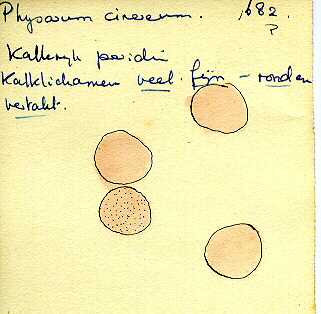 Physarum cinereum. 682.
?
Kalkryk peridie
Kalklichamen veel fijn - rond en
vertakt.